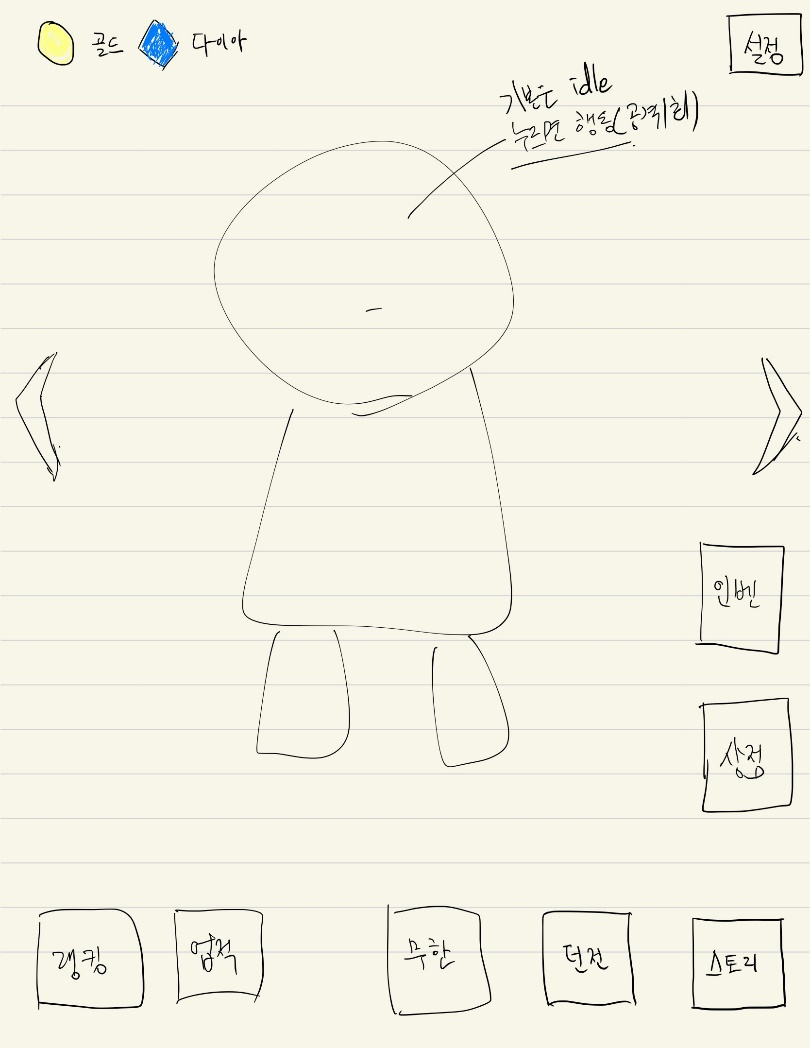 골드 다이아
설정
기본은 idle
누르면 행동(공격)
인벤
상점
랭킹
업적
무한
던전
스토리